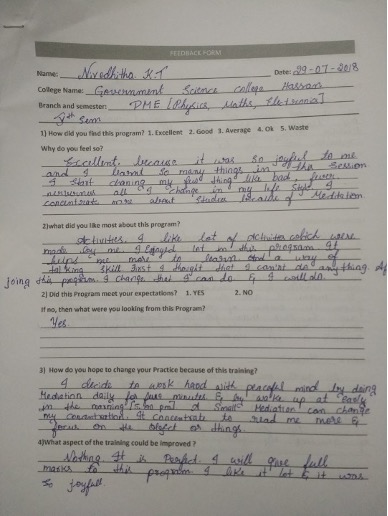 FEEDBACK FORM
Name: Nivedhitha K.T Date: 29-07-2018
College Name: Government Science college Hassan
Branch and semester: PME [Physics, Maths, Eletronics]
Ist Sem
1) How did you find this program? 1. Excellent 2. Good 3. Average 4. Ok 5. Waste
Why do you feel so?
Excellent, because it was so joyful to me
and I learnt so many things in this session
I start chaning my few things like bad, fever,
nervousness all I change in my life style I
concentrate more about studies because of Meditation
2)what did you like most about this program?
Activities, I like lot of activities which were
made by me. I Enjoyed lot in this program It
helps me more to learn and a way of
talking skill first I thought that I can't do anything. Af
joing this program I change that I can do & I will do.
2) Did this Program meet your expectations? 1. YES 2. NO
If no, then what were you looking from this Program?
Yes.
3) How do you hope to change your Practice because of this training?
I decide to work hand with peaceful mind by doing
Mediation daily for five minutes & by wake up at Early
in the morning. A Small Mediation can change
my concentration. It concentrate to read me more &
focus on the object or things.
4)What aspect of the training could be improved ?
Nothing. It is Perfect. I will give full
marks to this program. I like it lot & it was
so joyfull.